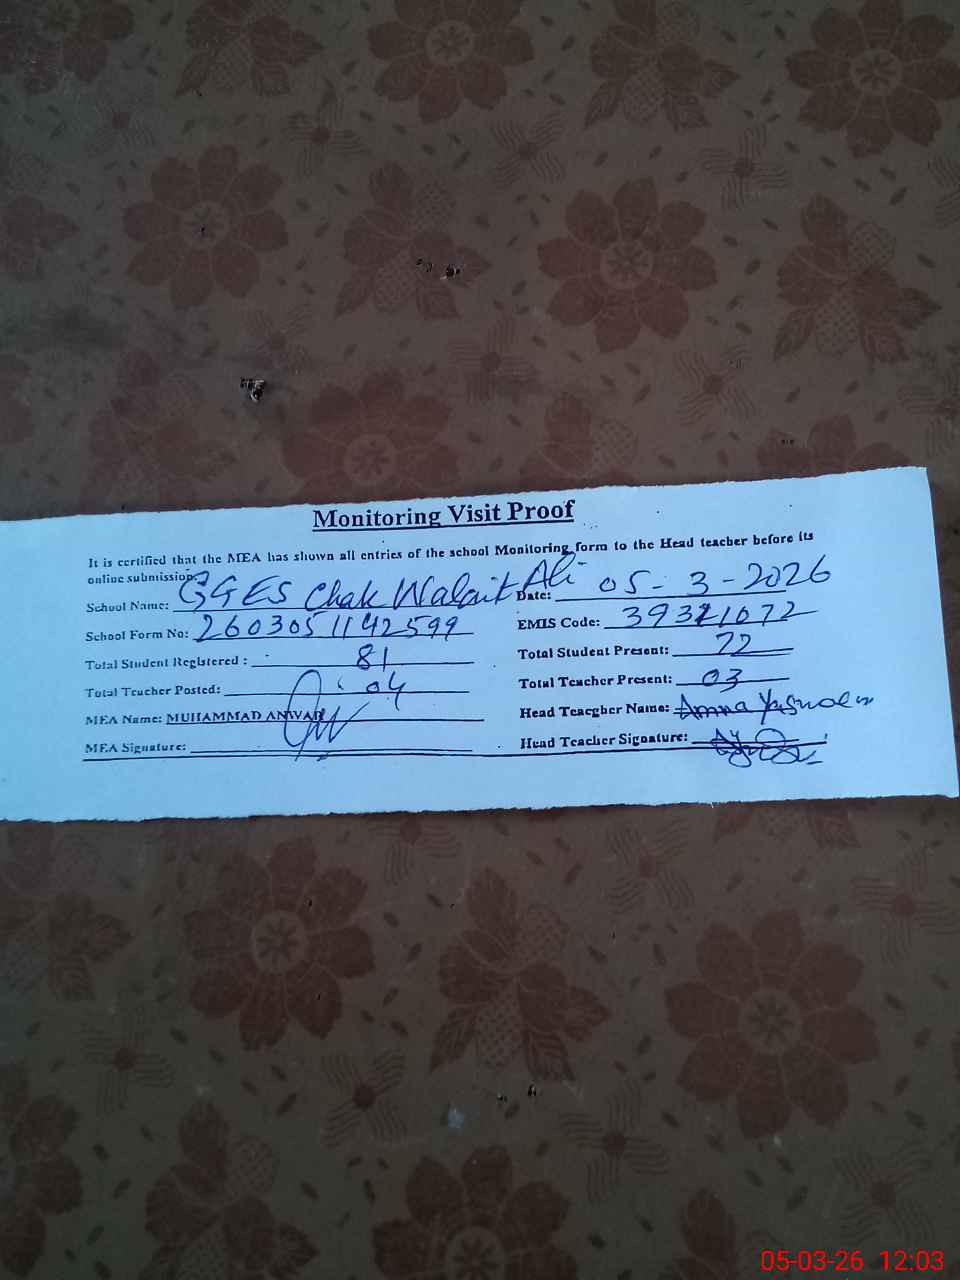 Monitoring Visit Proof
It is certified that the MEA has shown all entries of the school Monitoring form to the Head teacher before its
online submission.
School Name: GGES Chak Walait Ali Date: 05-3-2026
School Form No: 2603051142599 EMIS Code: 39321072
Total Student Registered : 81 Total Student Present: 72
Total Teacher Posted: 04 Total Teacher Present: 03
MEA Name: MUHAMMAD ANWAR Head Teacgher Name: Amna Yasmeen
MEA Signature: Head Teacher Signature:
05-03-26 12:03